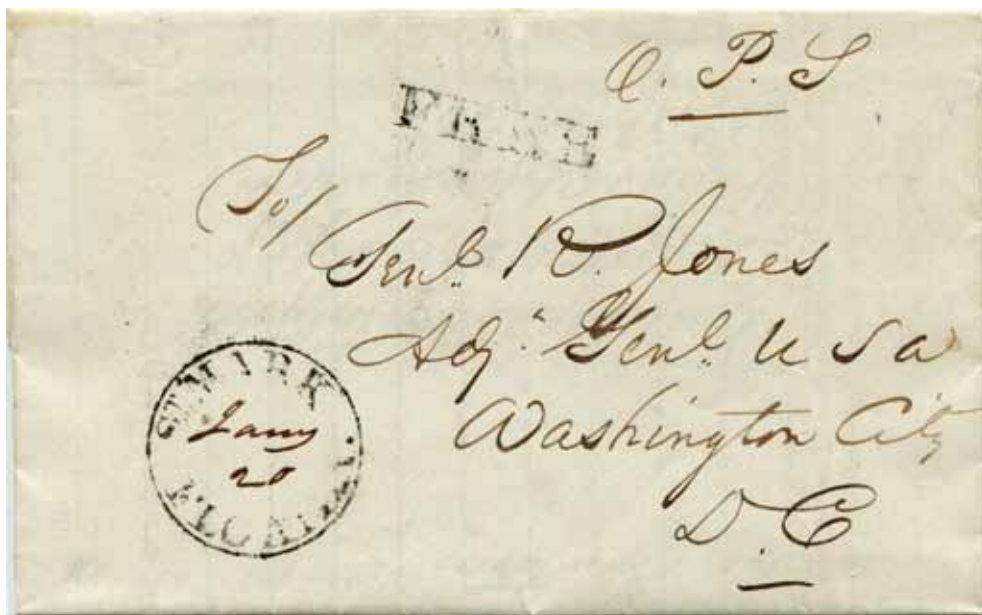 O. P. S
FREE
To/
Genl. R. Jones
Adj. Genl. U S a
Washington City
D. C
ST. MARK
Jany
20
FLORIDA.